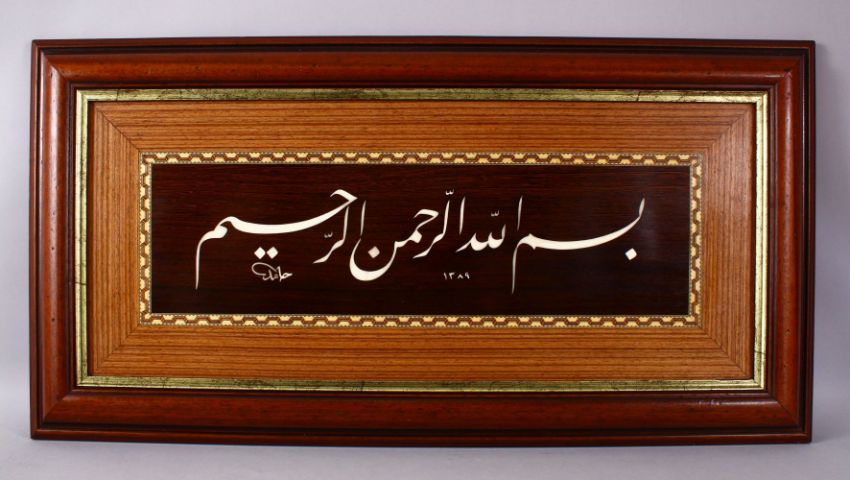 بسم الله الرحمن الرحيم
حامد
١٣٨٩